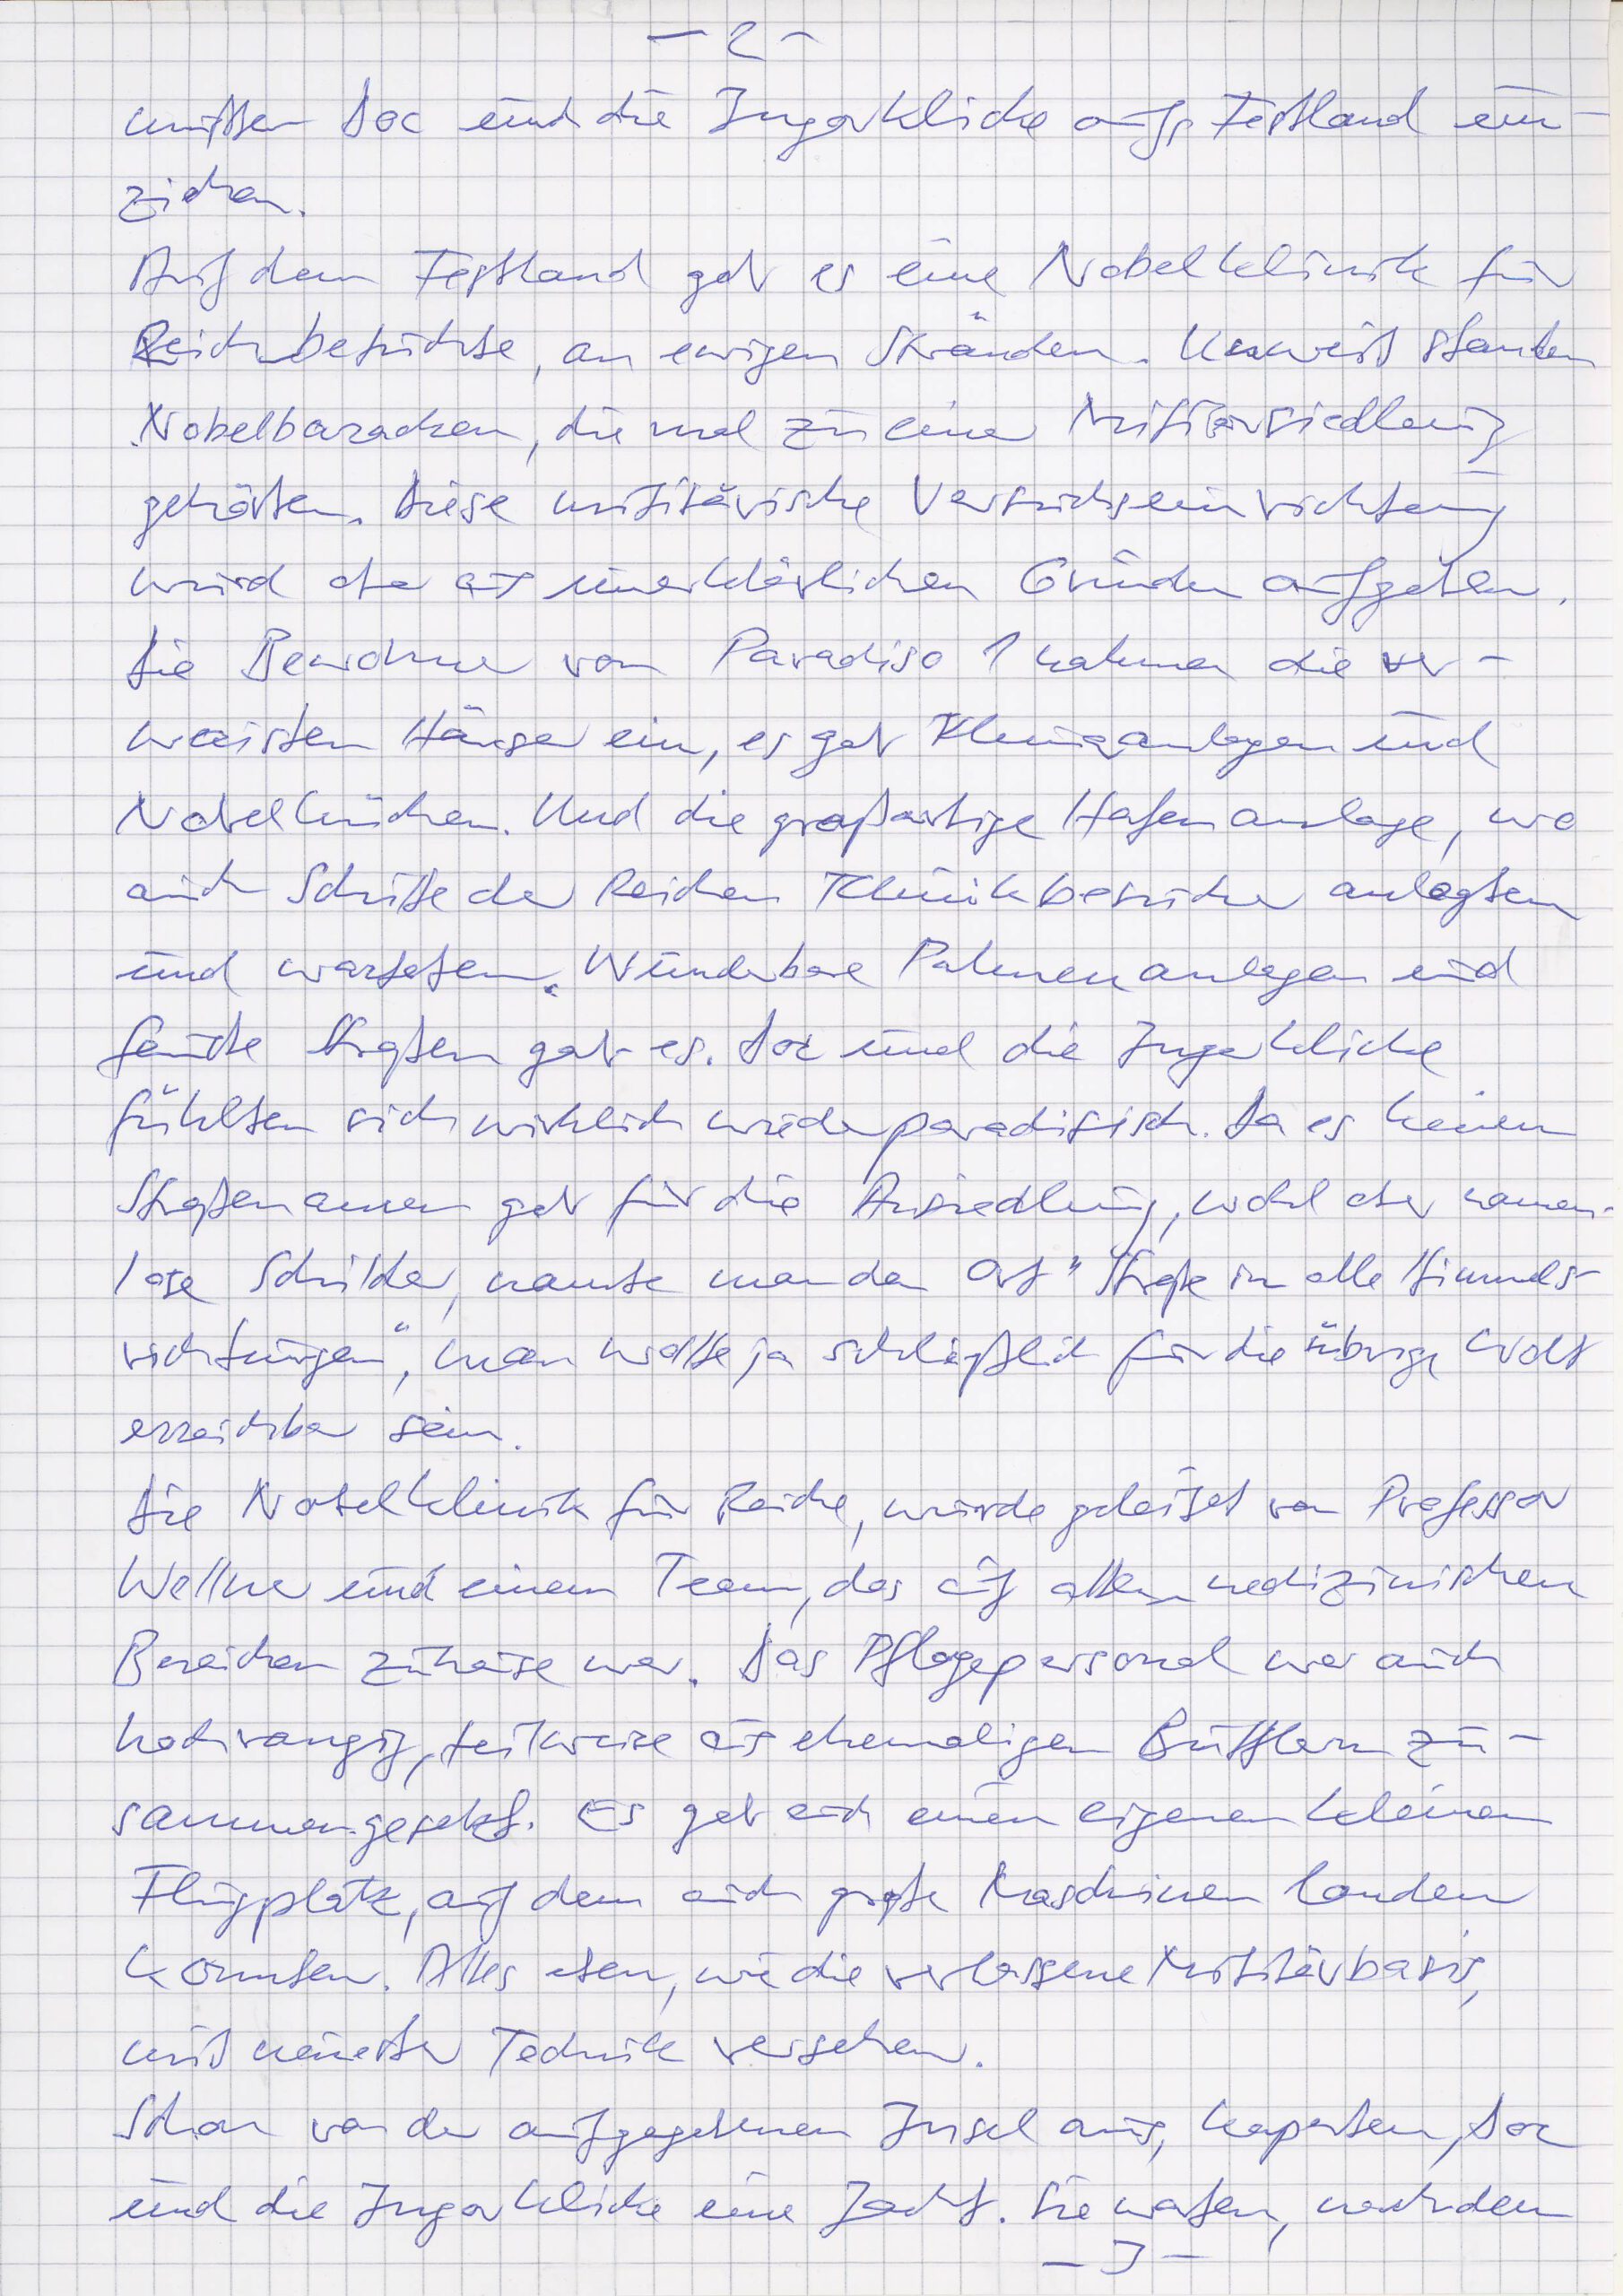 - 2 -
mußten Doc und die Ingorklicke aufs Festland um-
ziehen.
Auf dem Festland gab es eine Nobelklinik für
Reichbetuchte, an ewigen Stränden. Unweit standen
Nobelbaracken, die mal zu einer Militärsiedlung
gehörten. Diese militärische Versuchseinrichtung
wurd aber aus unerklärlichen Gründen aufgeben.
Die Bewohner von Paradiso 1 nahmen die ver-
waisten Häuser ein, es gab Klimaanlagen und
Nobelküchen. Und die großartige Hafenanlage, wo
auch Schiffe der Reichen Klinikbesucher anlegten
und warteten. Wunderbare Palmenanlagen und
Straßen gab es. Doc und die Ingorklicke
fühlten sich wirklich wieder paradisisch. Da es keinen
Straßennamen gab für die Ansiedlung, wohl aber namen-
lose Schilder, nannte man den Ort "Straße in alle Himmels-
richtungen", man wollte ja schließlich für die übrige Welt
erreichbar sein.
Die Nobelklinik für Reiche, wurde geleitet von Professor
Wellner und einem Team, das auf allen medizinischen
Bereichen zuhause war. Das Pflegepersonal war auch
hochrangig, teilweise aus ehemaligen Buttlern zu-
sammengesetzt. Es gab auch einen eigenen kleinen
Flugplatz, auf dem auch große Maschinen landen
konnten. Alles eben, wie die verlassene Militärbasis,
mit neuester Technik versehen.
Schon von der aufgegebenen Insel aus, kaperten, Doc
und die Ingorklicke eine Jacht. Sie waren, nachdem
- 3 -